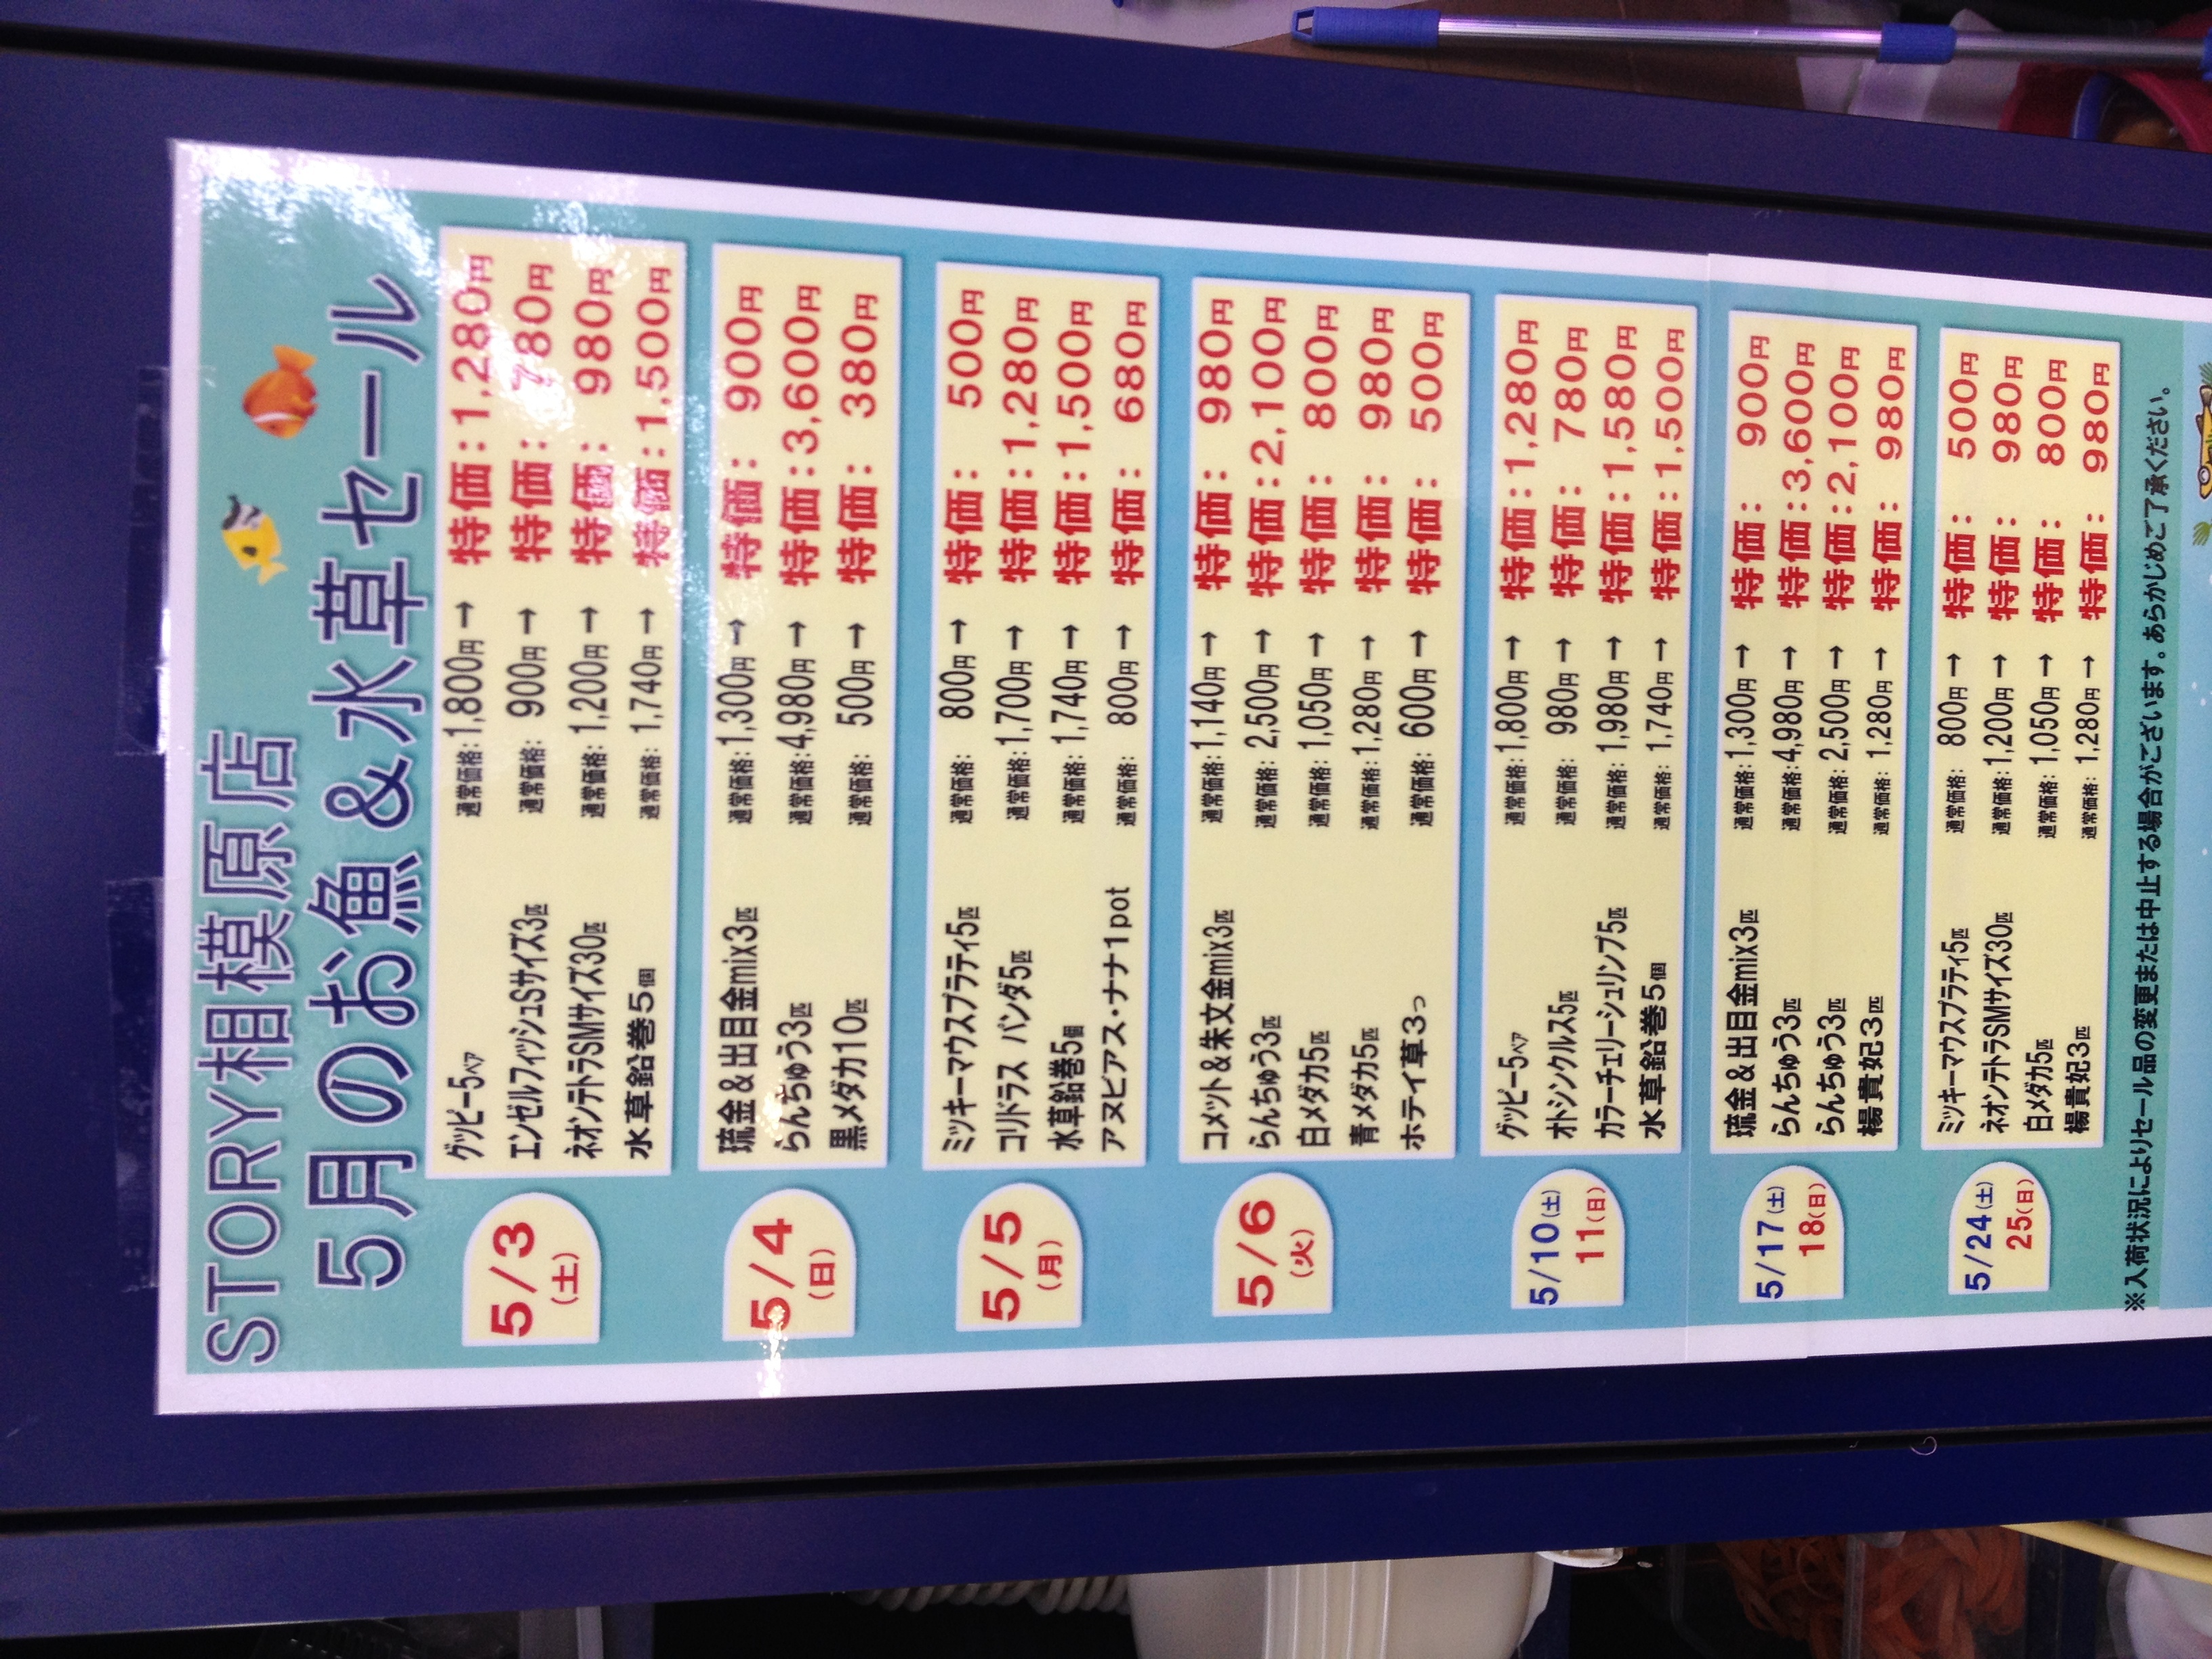 STORY相模原店
5月のお魚&水草セール
5/3
(土)
グッピー5ペア 通常価格:1,800円→ 特価:1,280円
エンゼルフィッシュSサイズ3匹 通常価格:900円→ 特価:780円
ネオンテトラSMサイズ30匹 通常価格:1,200円→ 特価:980円
水草鉛巻5個 通常価格:1,740円→ 特価:1,500円
5/4
(日)
琉金&出目金mix3匹 通常価格:1,300円→ 特価:900円
らんちゅう3匹 通常価格:4,980円→ 特価:3,600円
黒メダカ10匹 通常価格:500円→ 特価:380円
5/5
(月)
ミッキーマウスプラティ5匹 通常価格:800円→ 特価:500円
コリドラス パンダ5匹 通常価格:1,700円→ 特価:1,280円
水草鉛巻5個 通常価格:1,740円→ 特価:1,500円
アヌビアス・ナナ1pot 通常価格:800円→ 特価:680円
5/6
(火)
コメット&朱文金mix3匹 通常価格:1,140円→ 特価:980円
らんちゅう3匹 通常価格:2,500円→ 特価:2,100円
白メダカ5匹 通常価格:1,050円→ 特価:800円
青メダカ5匹 通常価格:1,280円→ 特価:980円
ホテイ草3っ 通常価格:600円→ 特価:500円
5/10(土)
11(日)
グッピー5ペア 通常価格:1,800円→ 特価:1,280円
オトシンクルス5匹 通常価格:980円→ 特価:780円
カラーチェリーシュリンプ5匹 通常価格:1,980円→ 特価:1,580円
水草鉛巻5個 通常価格:1,740円→ 特価:1,500円
5/17(土)
18(日)
琉金&出目金mix3匹 通常価格:1,300円→ 特価:900円
らんちゅう3匹 通常価格:4,980円→ 特価:3,600円
らんちゅう3匹 通常価格:2,500円→ 特価:2,100円
楊貴妃3匹 通常価格:1,280円→ 特価:980円
5/24(土)
25(日)
ミッキーマウスプラティ5匹 通常価格:800円→ 特価:500円
ネオンテトラSMサイズ30匹 通常価格:1,200円→ 特価:980円
白メダカ5匹 通常価格:1,050円→ 特価:800円
楊貴妃3匹 通常価格:1,280円→ 特価:980円
※入荷状況によりセール品の変更または中止する場合がございます。あらかじめご了承ください。